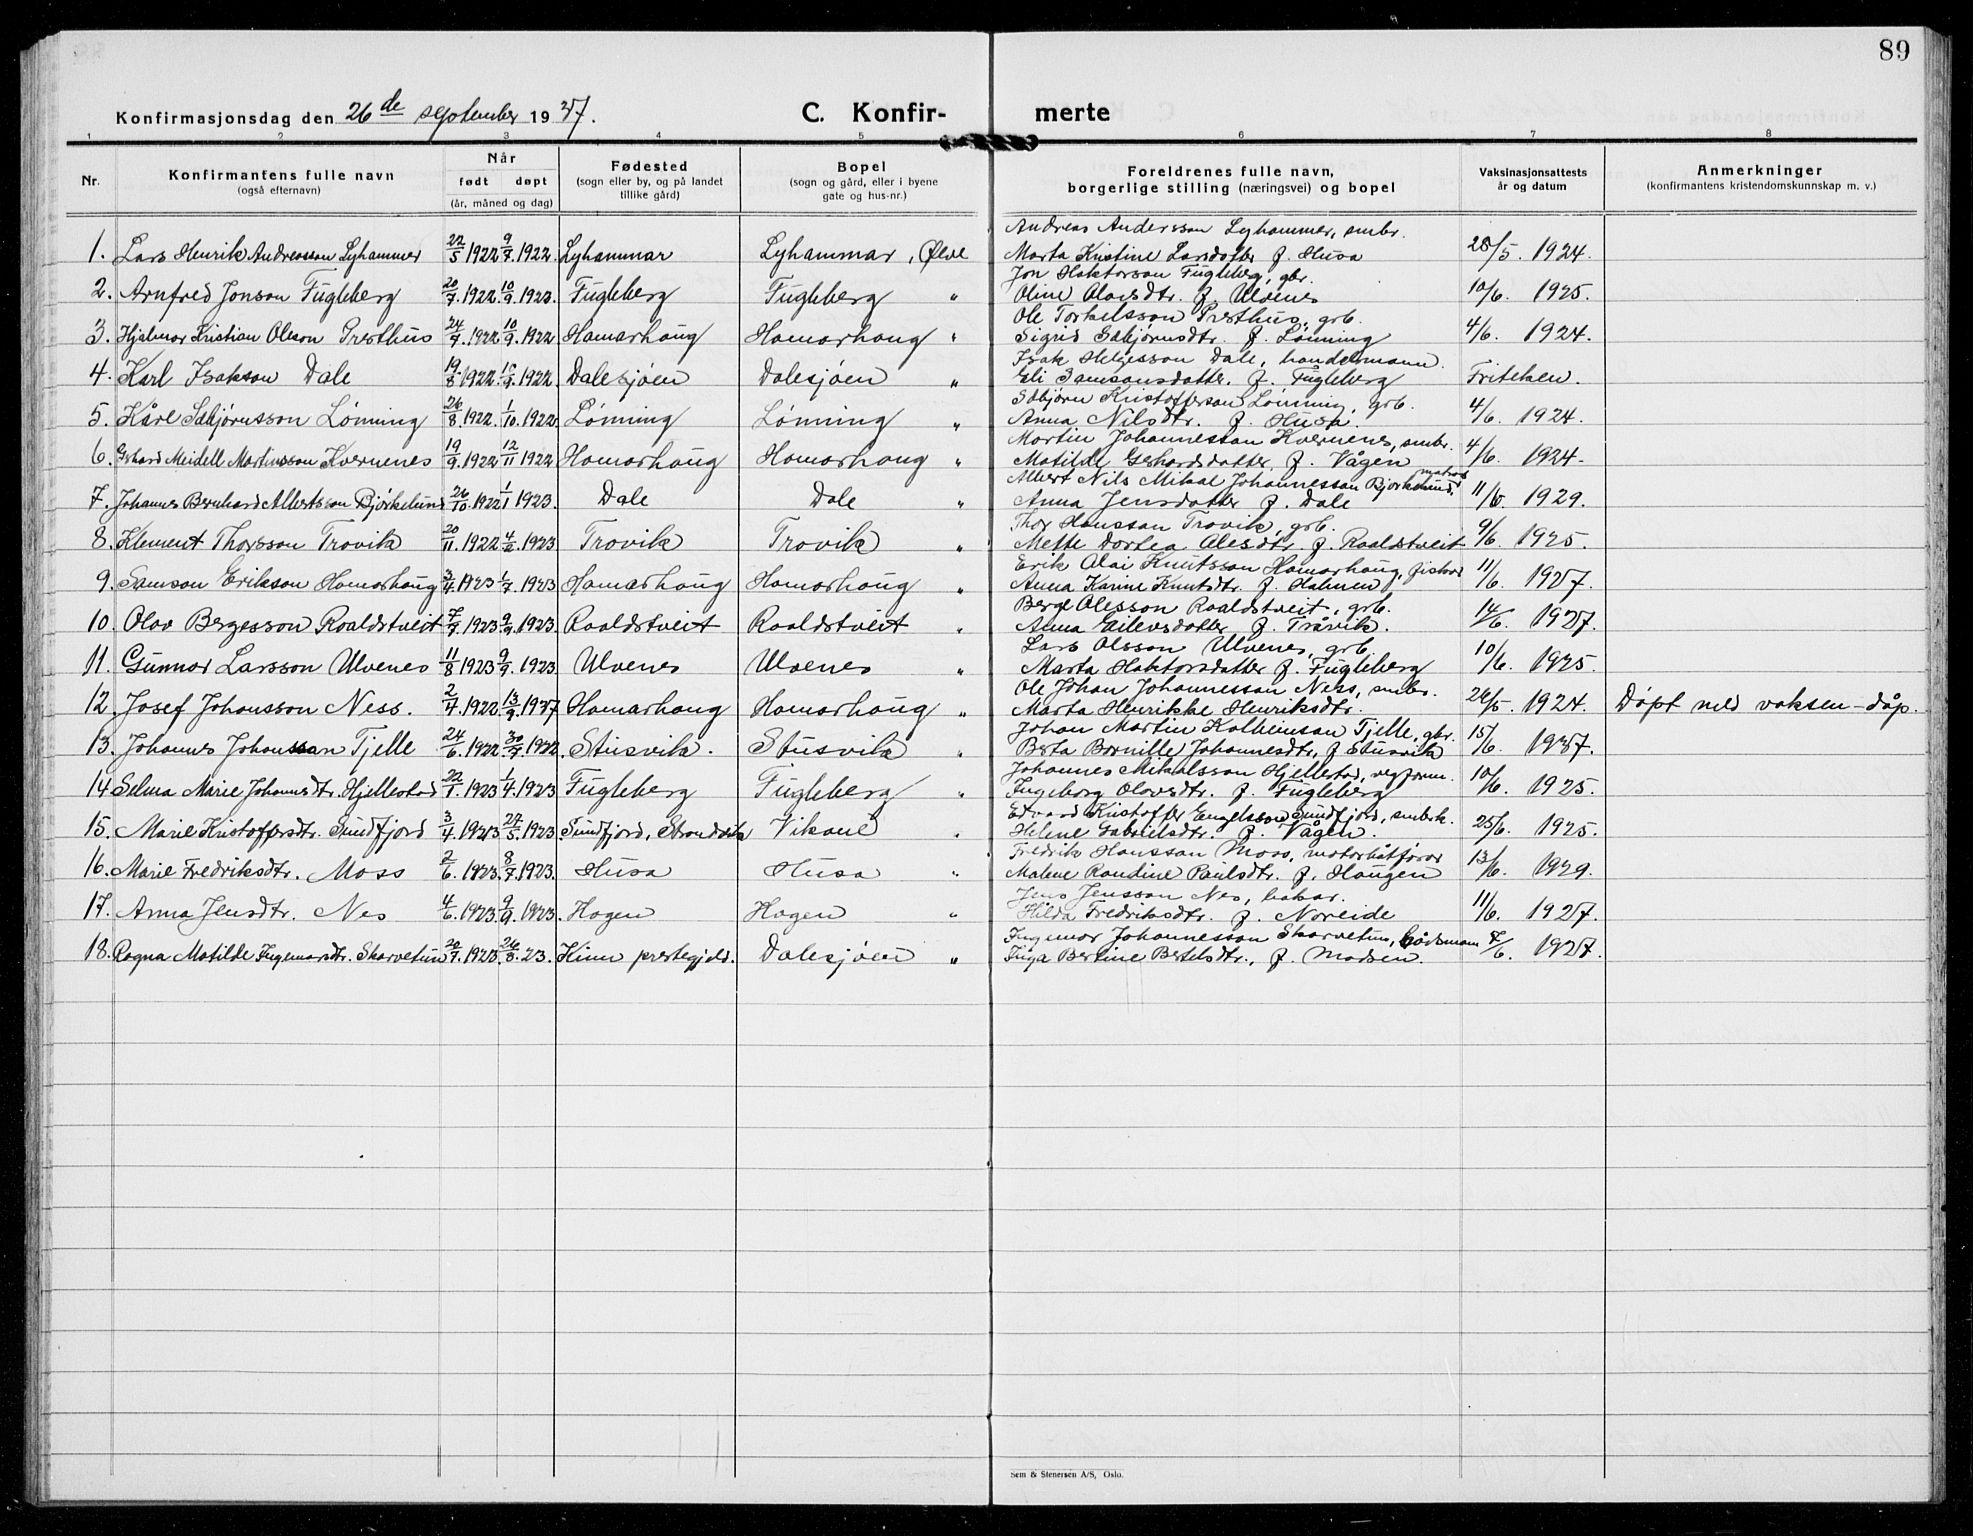 89
Konfirmasjonsdag den 26de september 1937. C. Konfirmerte
1 2 3 4 5 6 7 8
Nr. Konfirmantens fulle navn (også efternavn) Når født døpt (år, måned og dag) Fødested (sogn eller by, og på landet tillike gård) Bopel (sogn og gård, eller i byene gate og hus-nr.) Foreldrenes fulle navn, borgerlige stilling (næringsvei) og bopel Vaksinasjonsattests år og datum Anmerkninger (konfirmantens kristendomskunnskap m. v.)
1. Lars Henrik Andreasson Lyhammer 22/5 1922 9/7 1922 Lyhammar Lyhammar, Ølve Andreas Andersson Lyhammer, smbr. Marta Kristine Larsdatter f. Husa 28/5. 1924.
2. Arnfred Jonson Fugleberg 20/7. 1922 10/9. 1922. Fugleberg Fugleberg " Jon Haktorson Fugleberg, gbr. Oline Olavsdtr. f. Ulvenes 10/6. 1925.
3. Hjalmar Kristian Oleson Presthus 24/7. 1922 10/9. 1922 Hamarhaug Hamarhaug " Ole Torkelsson Presthus, grb. Sigrid Sæbjørnsdtr. f. Lønning 4/6. 1924.
4. Karl Isakson Dale 19/8. 1922. 10/9. 1922. Dalesjøen Dalesjøen " Isak Helgesson Dale, handelsmann. Eli Samsonsdatter. f. Fugleberg Friteken.
5. Kåre Sæbjørnsson Lønning 26/8. 1922. 1/10. 1922. Lønning Lønning " Sæbjørn Kristofferson Lønning, grb. Anna Nilsdtr. f. Husa. 4/6. 1924.
6. Gerhard Meidell Martinsson Kvernenes 19/9. 1922 12/11 1922 Hamarhaug Hamarhaug " Martin Johannesson Kvernenes, smbr. Matilde Gerhardsdatter, f. Vågen 4/6. 1924.
7. Johannes Bernhard Albertsson Bjørkelund 26/10. 1922 1/1 1923. Dale Dale " Albert Nils Mikal Johannesson Bjørkelund, matros Anna Jensdatter f. Dale 11/6 1929.
8. Klement Thorsson Trovik 20/11. 1922 4/2. 1923 Trovik Trovik " Thor Hansson Trovik, grb. Mette Dortea Olesdtr. f. Roaldstveit 9/6. 1925.
9. Samson Erikson Hamarhaug 3/4 1923 1/7. 1923 Hamarhaug Hamarhaug " Erik Olai Knutsson Hamarhaug, fiskar Anna Karine Knutsdtr. f. Halnen 11/6. 1927.
10. Olav Bergesson Roaldstveit 7/7. 1923. 9/9. 1923. Roaldstveit Roaldstveit " Berge Olesson Roaldstveit, grb. Anna Eilevsdatter f. Tråvik. 14/6. 1927.
11. Gunnar Larsson Ulvenes 11/8 1923 9/9. 1923 Ulvenes Ulvenes " Lars Olsson Ulvenes, grb. Marta Haktorsdatter f. Fugleberg 10/6. 1925.
12. Josef Johansson Ness. 2/7. 1922. 13/9. 1937 Hamarhaug Hamarhaug " Ole Johan Johannesson Ness, smbr. Marta Henrikke Henriksdtr. 24/5. 1924. Døpt med vaksen-dåp.
13. Johannes Johansson Tjelle 24/6. 1922 30/7. 1922. Stusvik. Stusvik " Johan Martin Kolbeinson Tjelle, gbr. Berta Bornille Johannesdtr, f. Stusvik 15/6. 1937.
14. Selma Marie Johannsdtr. Hjellestad 22/1. 1923 1/4. 1923 Fugleberg Fugleberg " Johannes Mikalsson Hjellestad, vegform. Ingeborg Olavsdtr. f. Fugleberg 10/6. 1925.
15. Marie Kristoffersdtr. Sundfjord 3/4. 1923 27/5. 1923 Sundfjord, Strandvik Vikane " Edvard Kristoffer Engelsson Sundfjord, smbrk. Helene Gabrielsdtr. f. Vågen. 25/6. 1925.
16. Marie Fredriksdtr. Moss 2/6. 1923. 8/7. 1923. Husa Husa " Fredrik Hansson Moss, motorbåtfører Malene Randine Paulsdtr. f. Haugen 13/6. 1929.
17. Anna Jensdtr. Nes 4/6. 1923. 9/9. 1923. Hagen Hagen " Jens Jensson Nes, bakar. Hilda Fredriksdtr. f. Noreide 11/6. 1927.
18. Ragna Matilde Ingemarsdtr. Skorvetun 20/7. 1923. 26/8. 23. Kinn prestegjeld. Dalesjøen " Ingemar Johannesson Skorvetun, Gårdsmann Inga Bertine Bertelsdtr., f. Madsen. 7/6. 1927.
Sem & Stenersen A/S, Oslo.